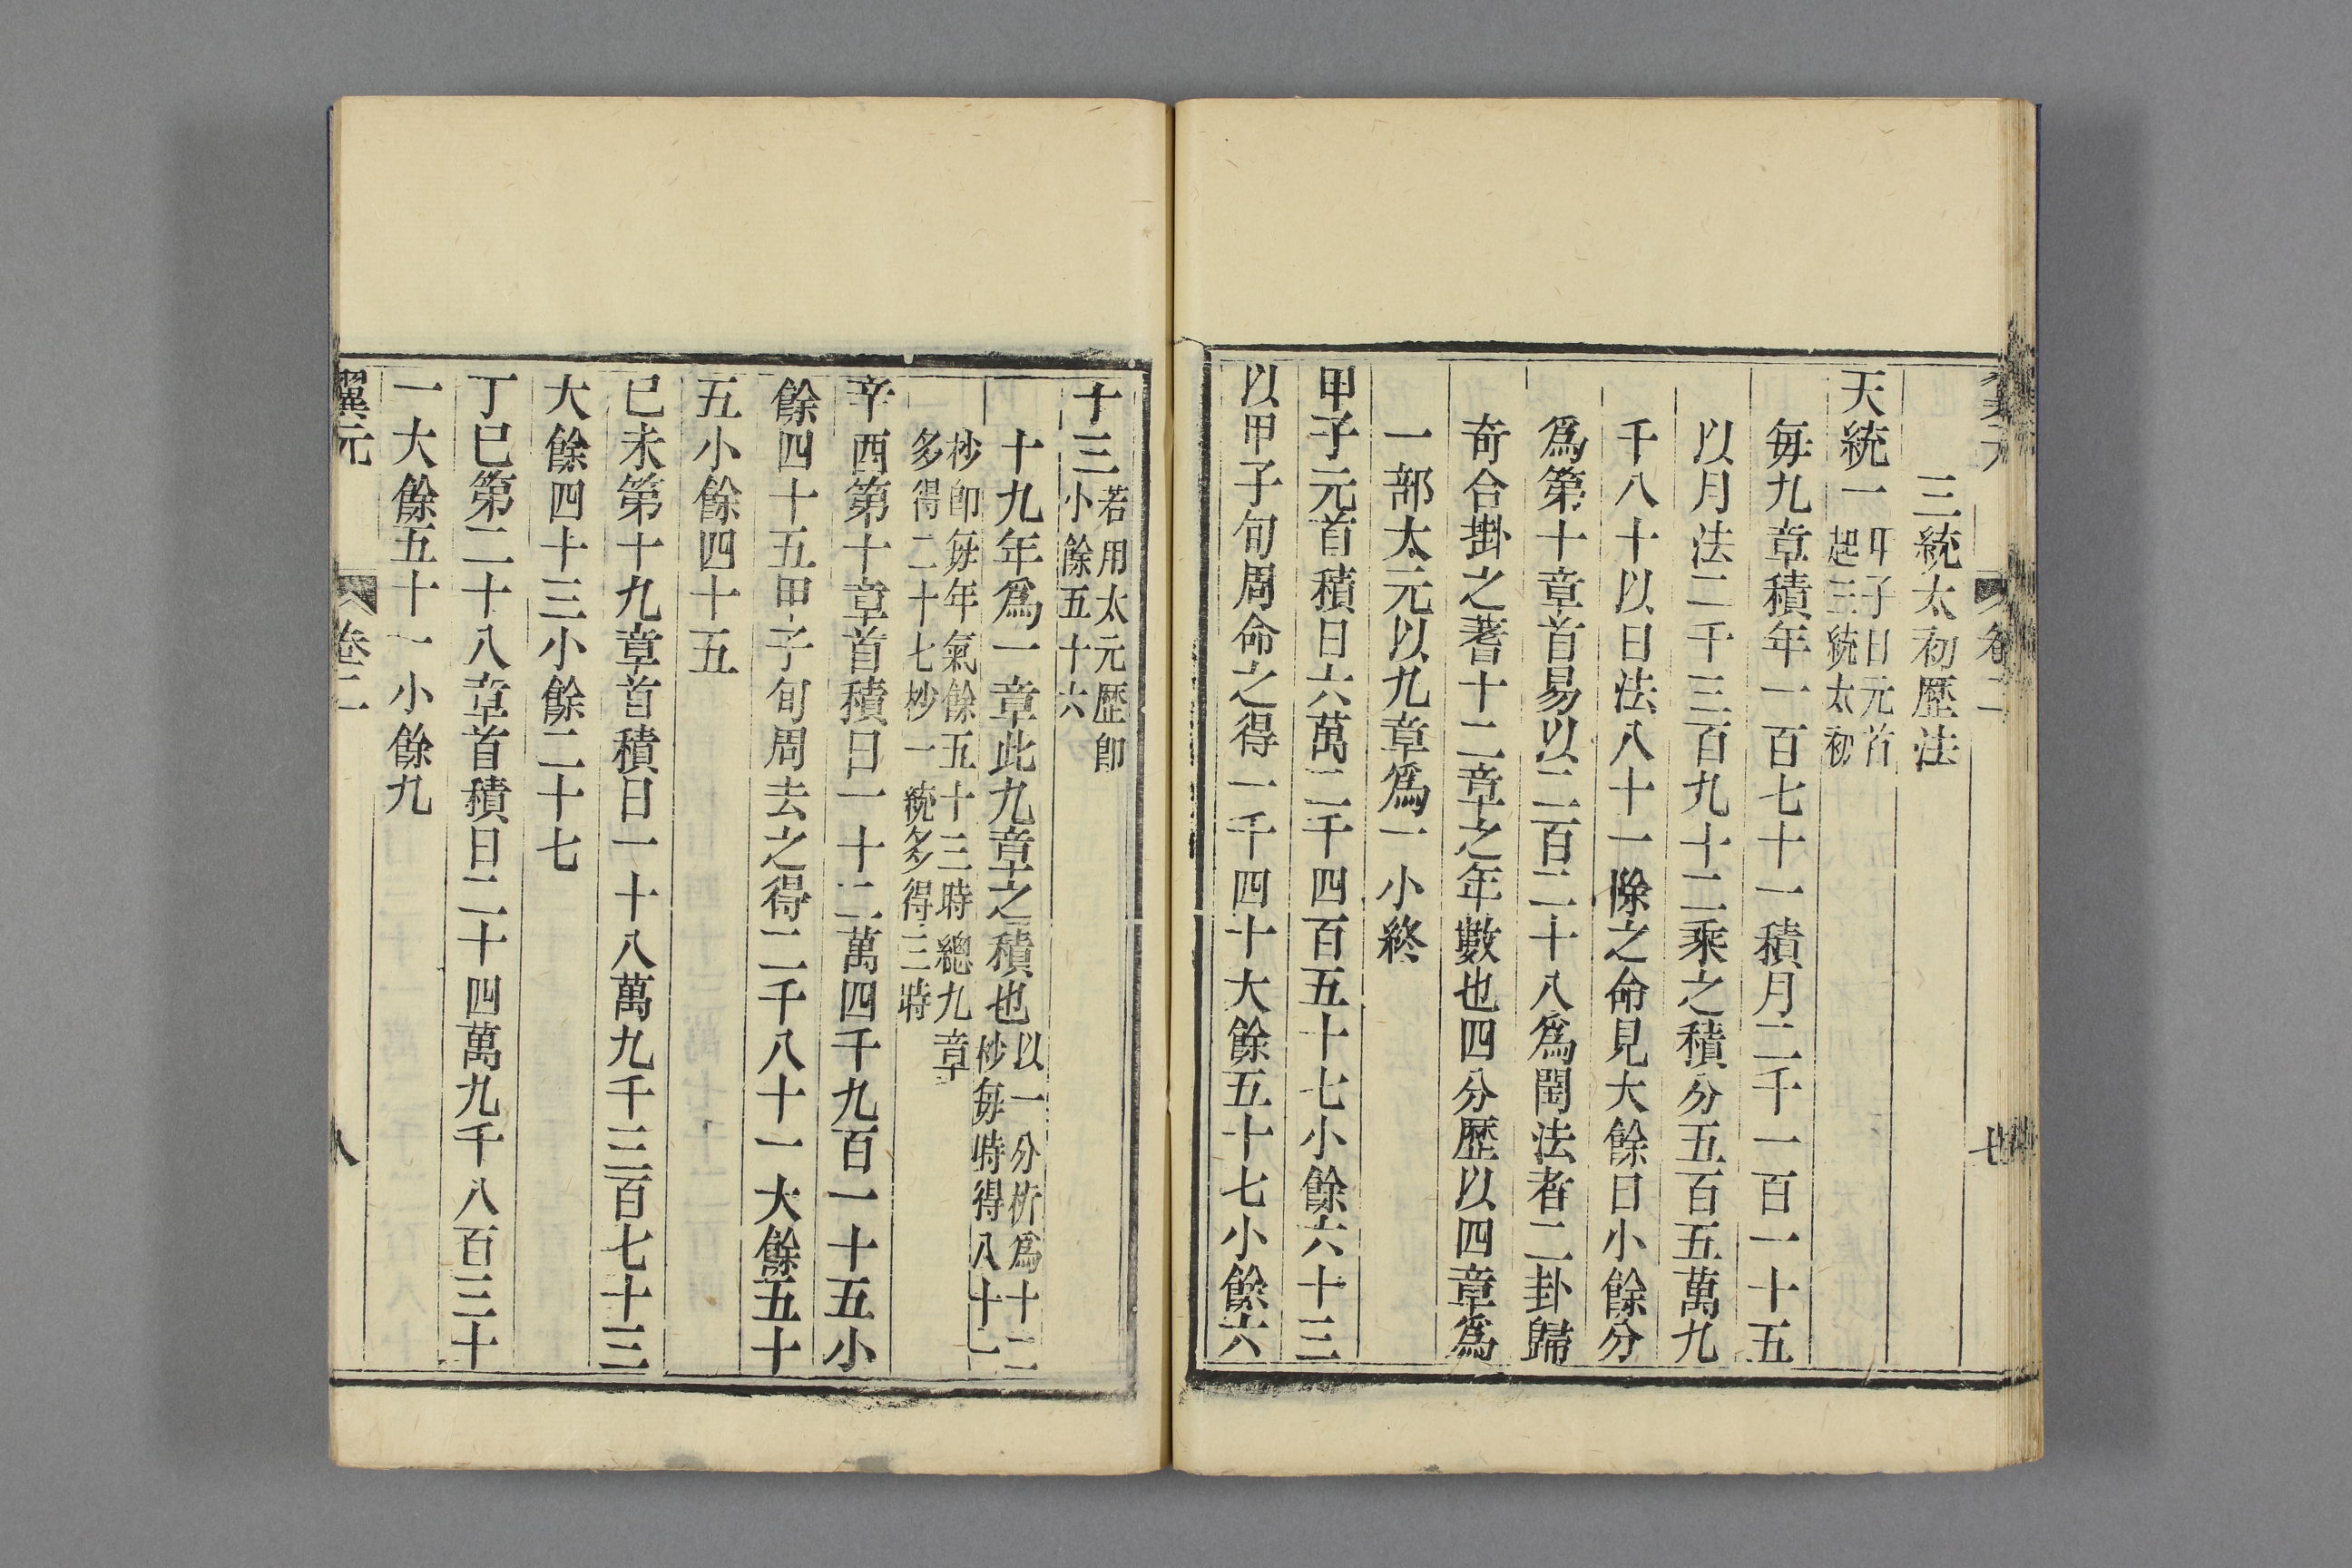 卷二
七
三統太初歷法
天統一甲子日元首
起三統太初
每九章積年一百七十一積月二千一百一十五
以月法二千三百九十二乘之積分五百五萬九
千八十以日法八十一除之命見大餘日小餘分
爲第十章首易以二百二十八爲閏法者二卦歸
奇合掛之蓍十二章之年數也四分歷以四章爲
一部太元以九章爲一小終
甲子元首積日六萬二千四百五十七小餘六十三
以甲子旬周命之得一千四十大餘五十七小餘六
十三若用太元歷卽
小餘五十六
十九年爲一章此九章之積也以一分析爲十二
杪每時得八十一
杪卽每年氣餘五十三時總九章
多得二十七杪一統多得三時
辛酉第十章首積日一十二萬四千九百一十五小
餘四十五甲子旬周去之得二千八十一大餘五十
五小餘四十五
己未第十九章首積日一十八萬九千三百七十三
大餘四十三小餘二十七
丁巳第二十八章首積日二十四萬九千八百三十
一大餘五十一小餘九
翼元
卷二
八